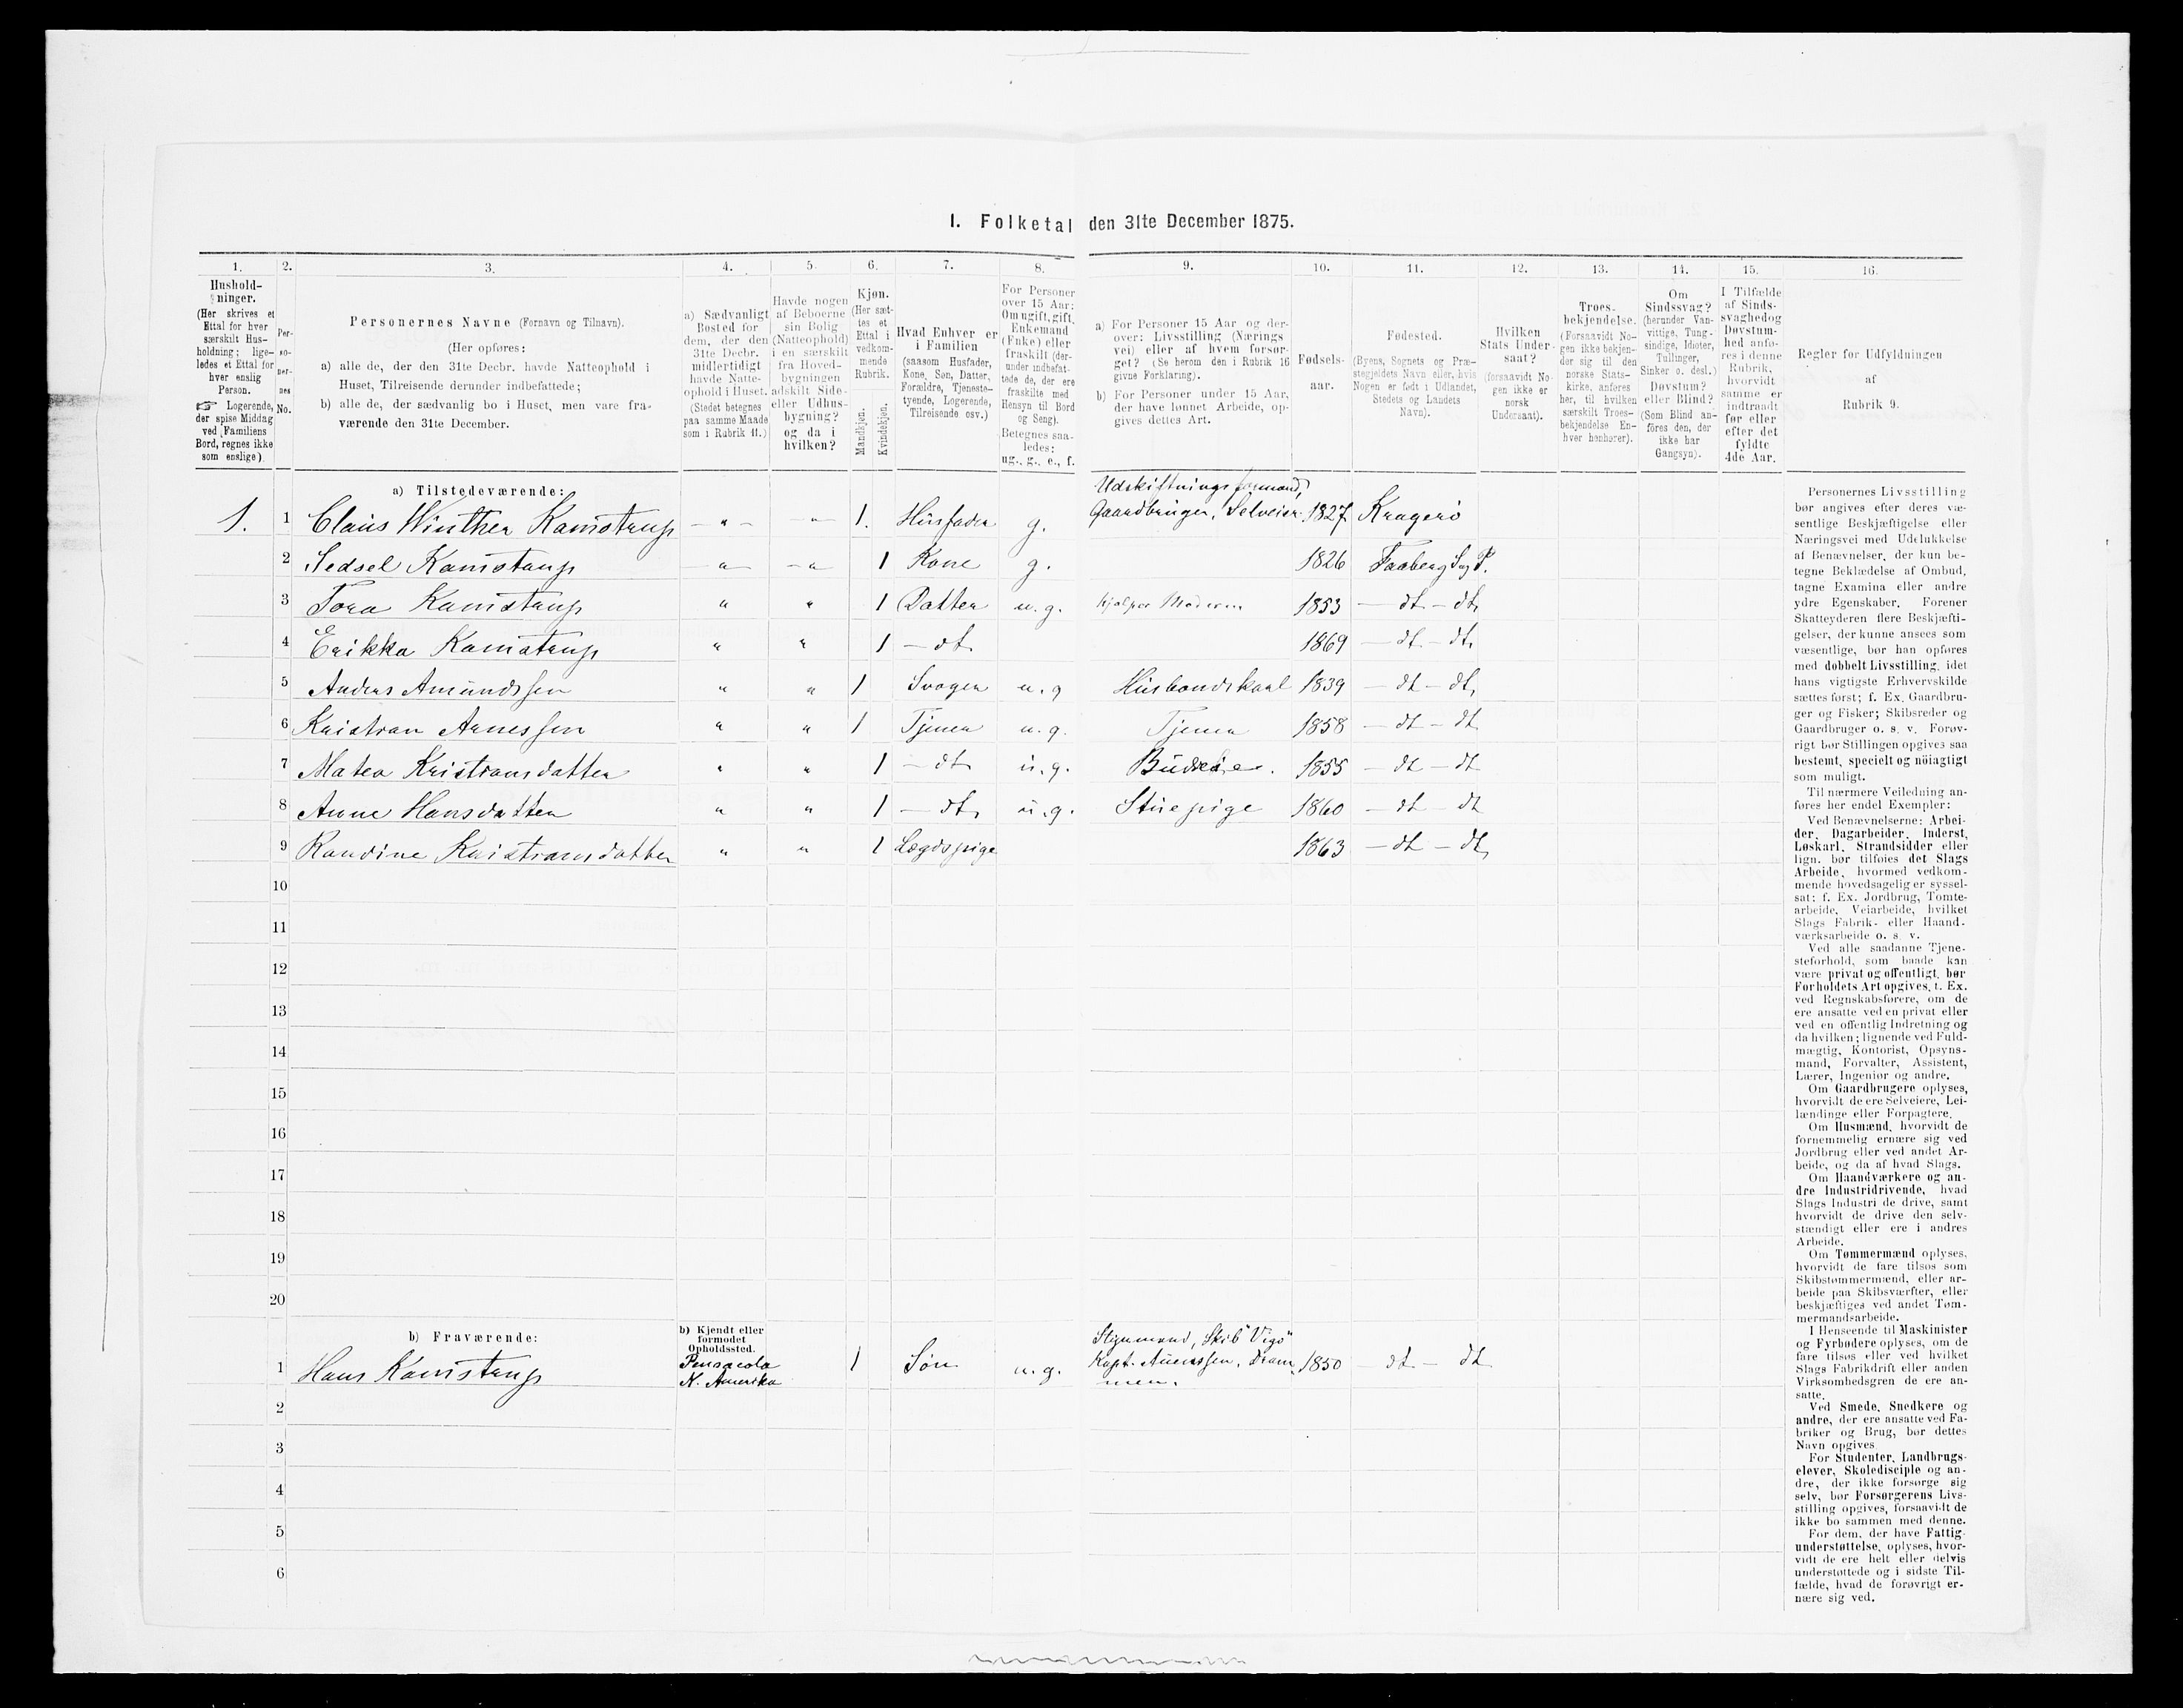 I. Folketal den 31te December 1875.
1. 2. 3. 4. 5. 6. 7. 8. 9. 10. 11. 12. 13. 14. 15. 16.
Hushold-
ninger.
(Her skrives et
Ettal for hver
særskilt Hus-
holdning; lige-
ledes et Ettal for
hver enslig
Person.
☞ Logerende,
der spise Middag
ved Familiens
Bord, regnes ikke
som enslige).
Per-
so-
ner-
nes
No.
Personernes Navne (Fornavn og Tilnavn).
(Her opføres:
a) alle de, der den 31te Decbr. havde Natteophold i
Huset, Tilreisende derunder indbefattede;
b) alle de, der sædvanlig bo i Huset, men vare fra-
værende den 31te December.
a) Sædvanligt
Bosted for
dem, der den
31te Decbr.
midlertidigt
havde Natte-
ophold i Huset.
(Stedet betegnes
paa samme Maade
som i Rubrik 11.)
Havde nogen
af Beboerne
sin Bolig
(Natteophold)
i en særskilt
fra Hoved-
bygningen
adskilt Side-
eller Udhus-
bygning?
og da i
hvilken?
Kjøn.
(Her sæt-
tes et
Ettal i
vedkom-
mende
Rubrik.
Mandkjøn.
Kvindekjøn.
Hvad Enhver er
i Familien
(saasom Husfader,
Kone, Søn, Datter,
Forældre, Tjeneste-
tyende, Logerende,
Tilreisende osv.)
For Personer
over 15 Aar:
Om ugift, gift,
Enkemand
(Enke) eller
fraskilt (der-
under indbefat-
tede de, der ere
fraskilte med
Hensyn til Bord
og Seng).
Betegnes saa-
ledes:
ug., g., e., f.
a) For Personer 15 Aar og der-
over: Livsstilling (Nærings
vei) eller af hvem forsør-
get? (Se herom den i Rubrik 16
givne Forklaring).
b) For Personer under 15 Aar,
der have lønnet Arbeide, op-
gives dettes Art.
Fødsels-
aar.
Fødested.
(Byens, Sognets og Præ-
stegjeldets Navn eller, hvis
Nogen er født i Udlandet,
Stedets og Landets
Navn).
Hvilken
Stats Under-
saat?
(forsaavidt No-
gen ikke er
norsk
Undersaat).
Troes-
bekjendelse.
(Forsaavidt No-
gen ikke bekjen-
der sig til den
norske Stats-
kirke, anføres
her, til hvilken
særskilt Troes-
bekjendelse En-
hver henhører).
Om
Sindssvag?
(herunder Van-
vittige, Tung-
sindige, Idioter,
Tullinger,
Sinker o. desl.)
Døvstum?
eller Blind?
(Som Blind an-
føres den, der
ikke har
Gangsyn).
I Tilfælde
af Sinds-
svaghed og
Døvstum-
hed anfø-
res i denne
Rubrik,
hvorvidt
samme er
indtraadt
før eller
efter det
fyldte
4de Aar.
Regler for Udfyldningen
af
Rubrik 9.
a) Tilstedeværende:
Udskiftningsformand,
1. 1 Claus Winther Kamstrup — " — — " — 1. Husfader g. Gaardbruger, Selveier 1827 Kragerø
2 Sedsel Kamstrup — " — — " — 1 Kone g. 1826 Faaberg S. og P.
3 Tora Kamstrup " " 1 Datter u. g. hjelper Moderen 1853 — dt — dt
4 Erikka Kamstrup " " 1 — dt 1869 — dt — dt
5 Anders Amundssen " " 1 Svoger u. g Husbondskarl 1839 — dt — dt
6 Kristian Arnessen " " 1 Tjener u. g. Tjener 1858 — dt — dt
7 Matea Kristiansdatter " " 1 — dt u. g. Budeie. 1855 — dt — dt
8 Anne Hansdatter " " 1 — dt u. g. Stuepige 1860 — dt — dt
9 Randine Kristiansdatter " " 1 Lægdspige 1863 — dt — dt
10
11
12
13
14
15
16
17
18
19
20
b) Fraværende:
b) Kjendt eller
formodet
Opholdssted.
Styrmand, Skib "Vigo"
1 Hans Kamstrup Pensacola N. Amerika 1 Søn u. g. Kapt. Dram 1850 — dt — dt
men.
2
3
4
5
6
Personernes Livsstilling
bør angives efter deres væ-
sentlige Beskjæftigelse eller
Næringsvei med Udelukkelse
af Benævnelser, der kun be-
tegne Beklædelse af Ombud,
tagne Examina eller andre
ydre Egenskaber. Forener
Skatteyderen flere Beskjæfti-
gelser, der kunne ansees som
væsentlige, bør han opføres
med dobbelt Livsstilling, idet
hans vigtigste Erhvervskilde
sættes først; f. Ex. Gaardbru-
ger og Fisker; Skibsreder og
Gaardbruger o. s. v. Forøv-
rigt bør Stillingen opgives saa
bestemt, specielt og nöiagtigt
som muligt.
Til nærmere Veiledning an-
føres her endel Exempler:
Ved Benævnelserne: Arbei-
der, Dagarbeider, Inderst,
Løskarl, Strandsidder eller
lign. bør tilføies det Slags
Arbeide, hvormed vedkom-
mende hovedsagelig er syssel-
sat; f. Ex. Jordbrug, Tomte-
arbeide, Veiarbeide, hvilket
Slags Fabrik- eller Haand-
værksarbeide o. s. v.
Ved alle saadanne Tjene-
steforhold, som baade kan
være privat og offentligt, bør
Forholdets Art opgives, f. Ex.
ved Regnskabsførere, om de
ere ansatte ved en privat eller
ved en offentlig Indretning og
da hvilken; lignende ved Fuld-
mægtig, Kontorist, Opsyns-
mand, Forvalter, Assistent,
Lærer, Ingeniør og andre.
Om Gaardbrugere oplyses,
hvorvidt de ere Selveiere, Lei-
lændinge eller Forpagtere.
Om Husmænd, hvorvidt de
fornemmelig ernære sig ved
Jordbrug eller ved andet Ar-
beide, og da af hvad Slags.
Om Haandværkere og an-
dre Industridrivende, hvad
Slags Industri de drive, samt
hvorvidt de drive den selv-
stændigt eller ere i andres
Arbeide.
Om Tømmermænd oplyses,
hvorvidt de fare tilsøs som
Skibstømmermænd, eller ar-
beide paa Skibsværfter, eller
beskjæftiges ved andet Tøm-
mermandsarbeide.
I Henseende til Maskinister
og Fyrbødere oplyses, om de
fare tilsøs eller ved hvilket
Slags Fabrikdrift eller anden
Virksomhedsgren de ere an-
satte.
Ved Smede, Snedkere og
andre, der ere ansatte ved Fa-
briker og Brug, bør dettes
Navn opgives.
For Studenter, Landbrugs-
elever, Skoledisciple og an-
dre, der ikke forsørge sig
selv, bør Forsørgerens Livs-
stilling opgives, forsaavidt de
ikke bo sammen med denne.
For dem, der have Fattig-
understøttelse, oplyses, hvor-
vidt de ere helt eller delvis
understøttede og i sidste Til-
fælde, hvad de forøvrigt er-
nære sig ved.